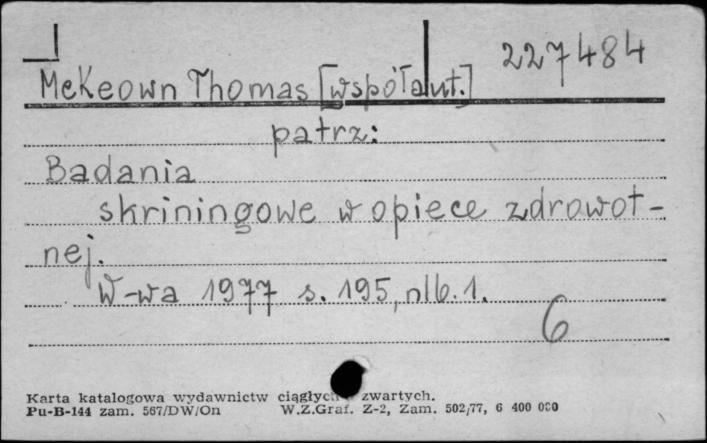 227484
McKeown Thomas [współaut.]
patrz:
Badania
skriningowe w opiece zdrowot-
nej.
W-wa 1977 s. 195, nlb. 1.
6
Karta katalogowa wydawnictw ciągłych zwartych.
Pu-B-144 zam. 567/DW/On W.Z.Graf. Z-2, Zam. 502/77, 6 400 000